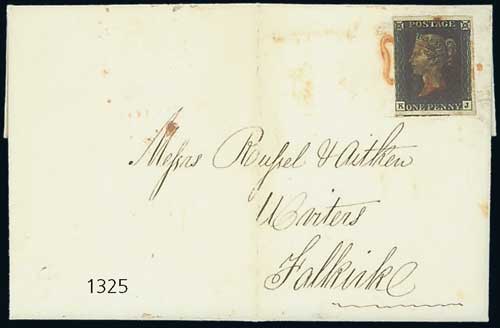 POSTAGE
K J
ONE PENNY
Messrs Russel & Aitken
Writers
Falkirk
1325